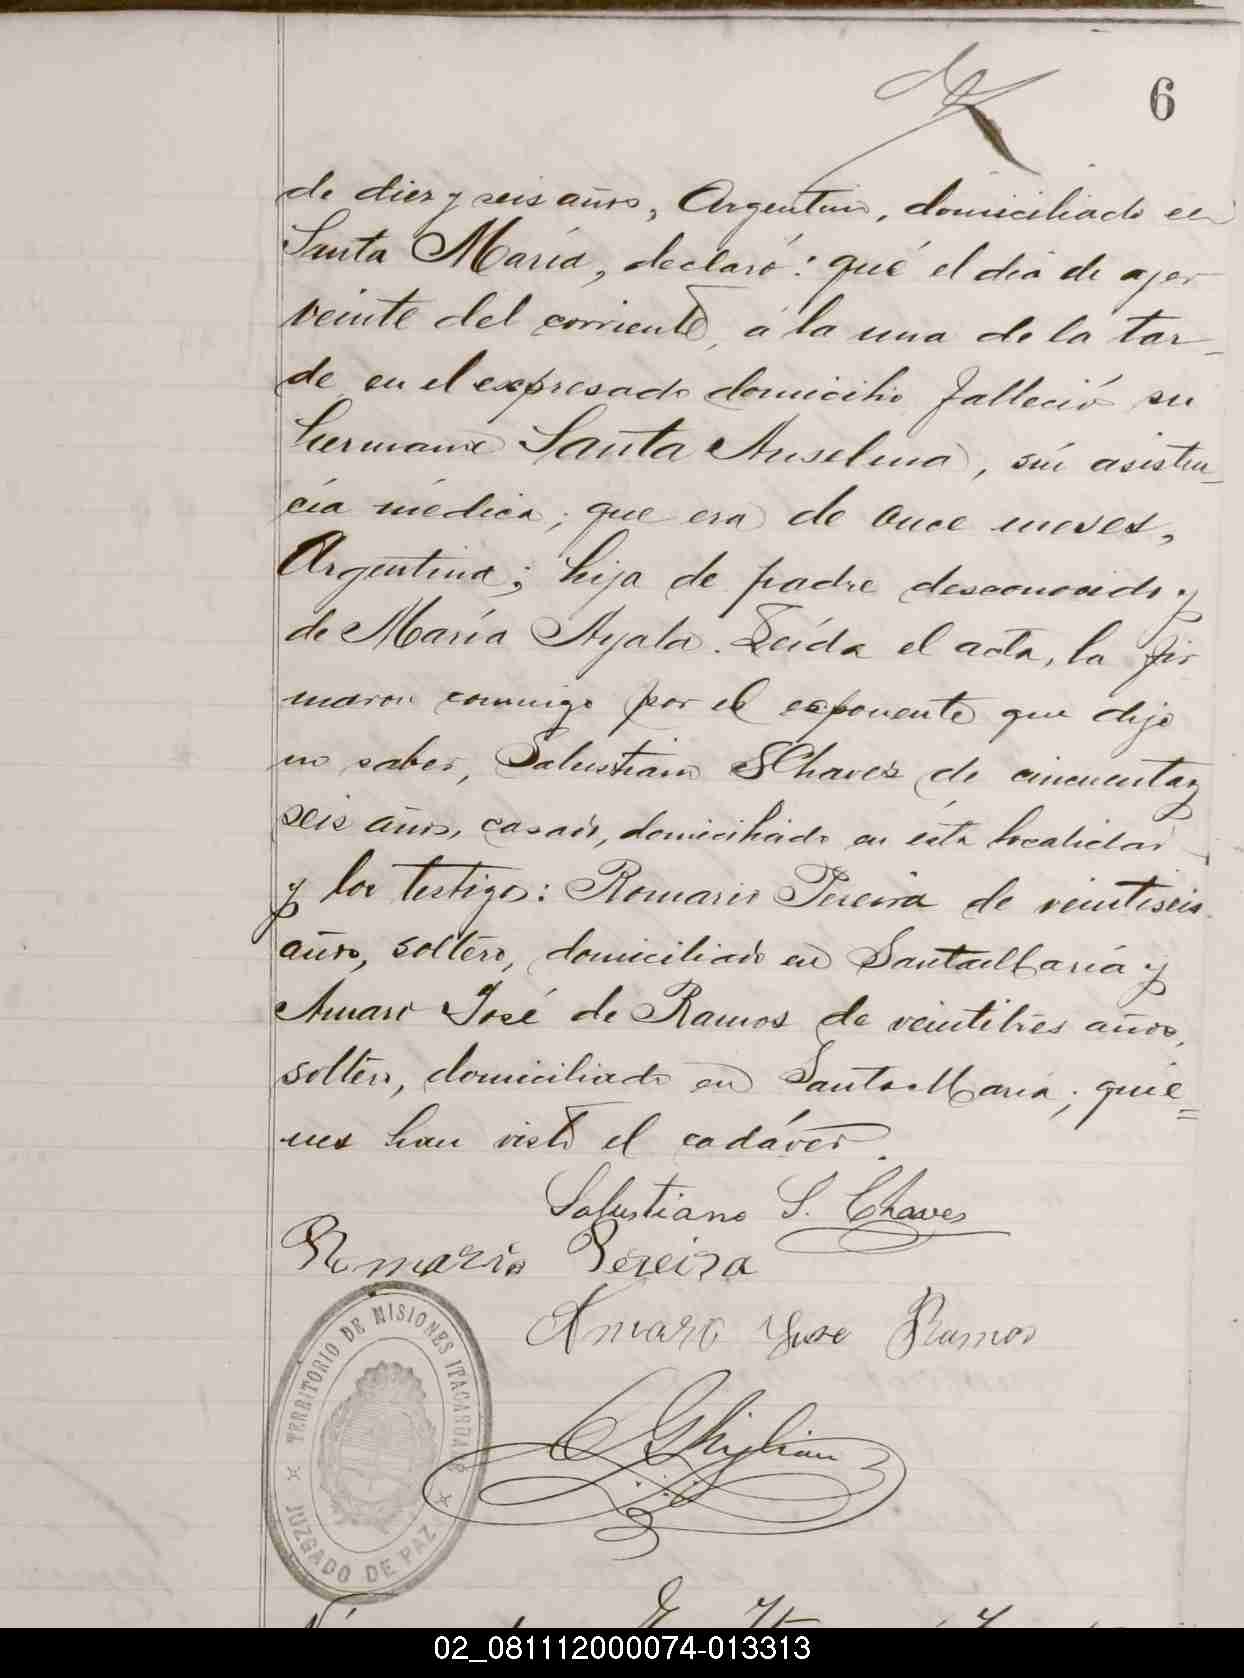 6
de diez y seis años, Argentino, domiciliado en
Santa María, declaró: qué el día de ayer
veinte del corriente, á la una de la tar-
de en el expresado domicilio falleció su
hermana Santa Anselma, sin asisten-
cia médica; que era de once meses,
Argentina; hija de padre desconocido y
de María Ayala. Leída el acta, la fir
maron conmigo por el exponente que dijo
no saber, Salustiano S Chaves de cincuenta y
seis años, casado, domiciliado en ésta localidad
y los testigos: Romario Pereira de veintiseis
años, soltero, domiciliado en Santa María y
Amaro José de Ramos de veintitrés años,
soltero, domiciliado en Santa María; quie=
nes han visto el cadáver.
Salustiano S. Chaves
Romario Pereira
Amaro Jose Ramos
Ghiglian
TERRITORIO DE MISIONES ITACARUARÉ
JUZGADO DE PAZ
02_081112000074-013313